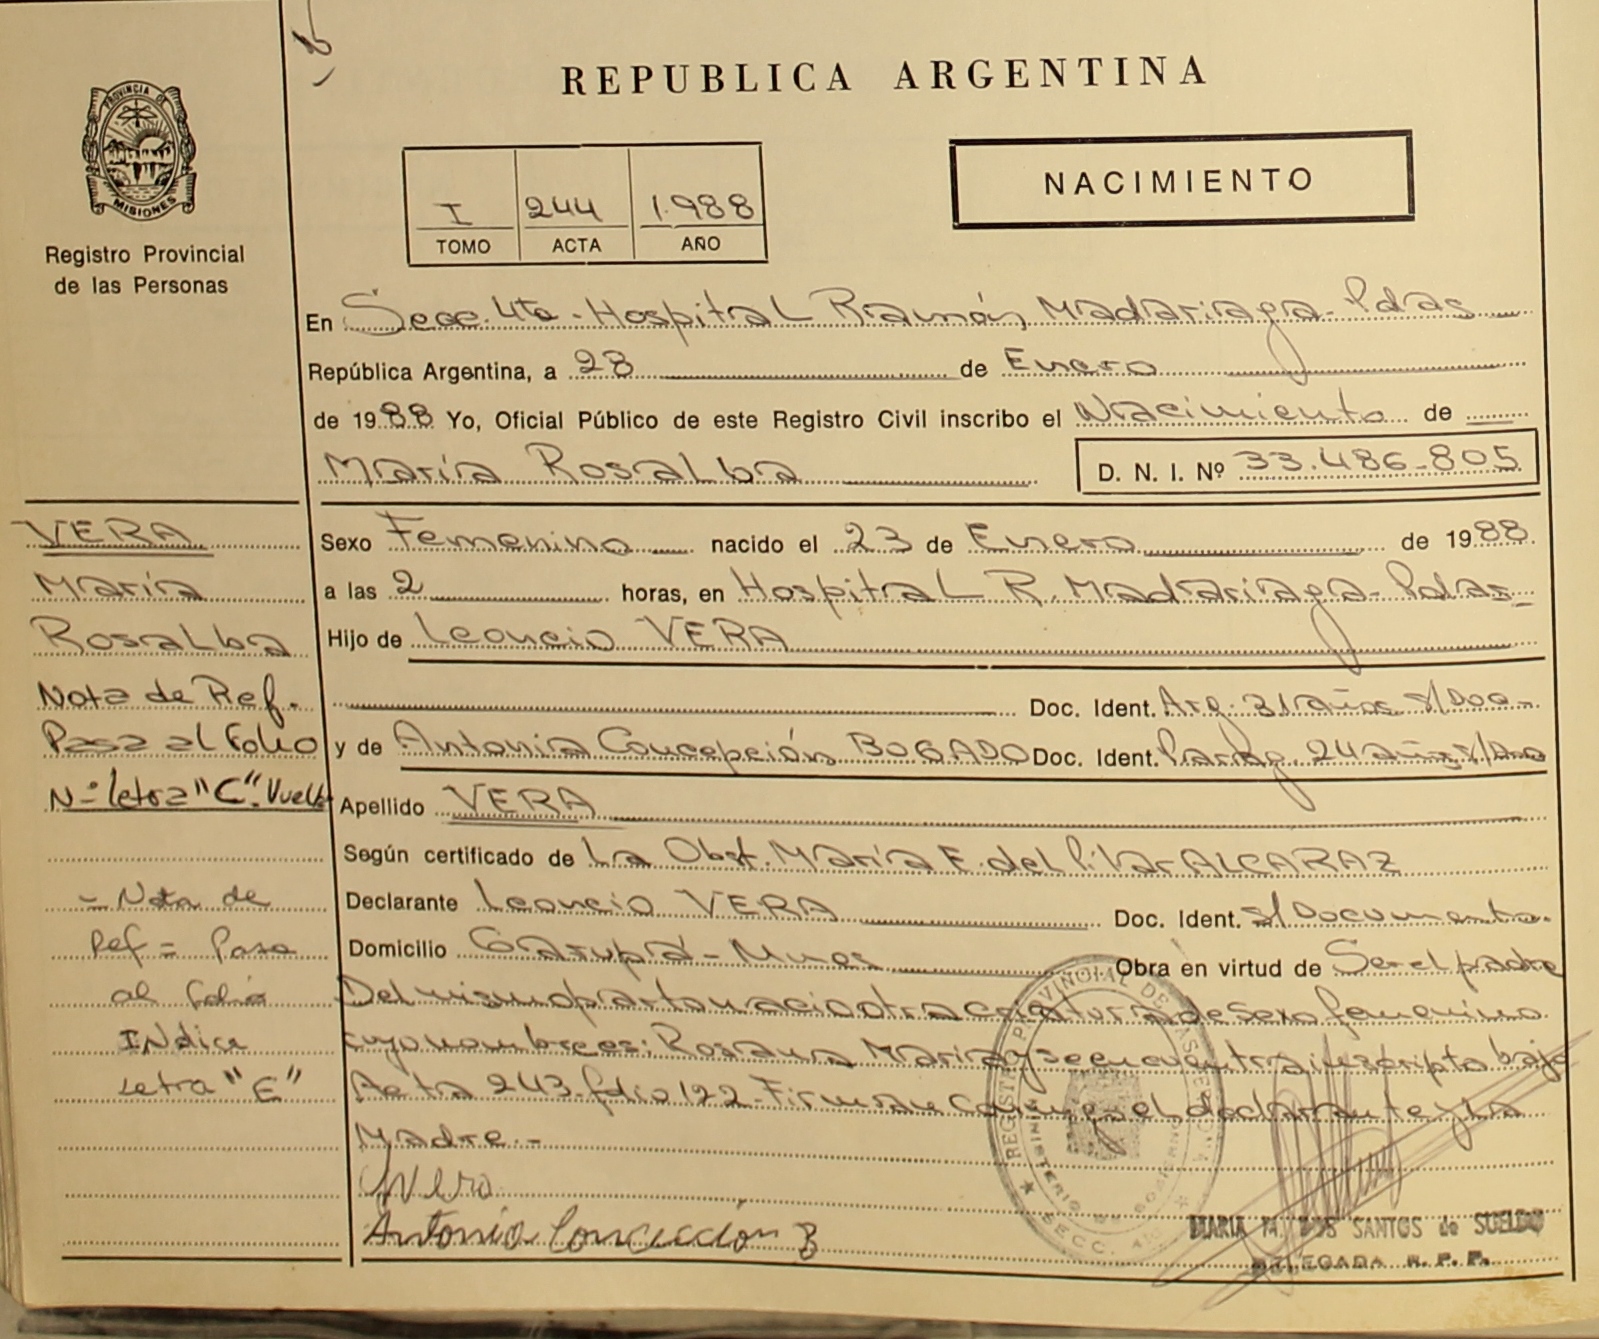 REPUBLICA ARGENTINA
PROVINCIA DE
MISIONES
Registro Provincial
de las Personas
I 244 1.988
TOMO ACTA AÑO
NACIMIENTO
En Secc. 4ta - Hospital Ramón Madariaga - Pdas
República Argentina, a 28 de Enero
de 1988 Yo, Oficial Público de este Registro Civil inscribo el Nacimiento de
María Rosalba D. N. I. Nº 33.486-805
VERA
María
Rosalba
Nota de Ref.
Pasa al Folio
Nº letra "C". Vuelta
- Nota de
Ref = Pasa
al folio
INdice
Letra "E"
Sexo Femenino nacido el 23 de Enero de 1988
a las 2 horas, en Hospital R. Madariaga - Pdas -
Hijo de Leoncio VERA
Doc. Ident. Arg. 31 años s/Doc -
y de Antonia Concepción BOGADO Doc. Ident. Parag. 24 años s/Doc
Apellido VERA
Según certificado de La Obst. María E. del Pilar ALCARAZ
Declarante Leoncio VERA Doc. Ident. s/Documento -
Domicilio Garupá - Mnes Obra en virtud de Ser el padre
Del mismo parto nacio otra criatura de sexo femenino
cuyo nombre es: Rosana María y se encuentra inscripta bajo
Acta 243 - folio 122 - Firman Conmigo el declarante y La
Madre. -
Vera
Antonia Concepción B
REGISTRO PROVINCIAL DE LAS PERSONAS
MINISTERIO DE GOBIERNO
SECC. 4ta
MARIA M. DOS SANTOS de SUELDO
DELEGADA R. P. P.